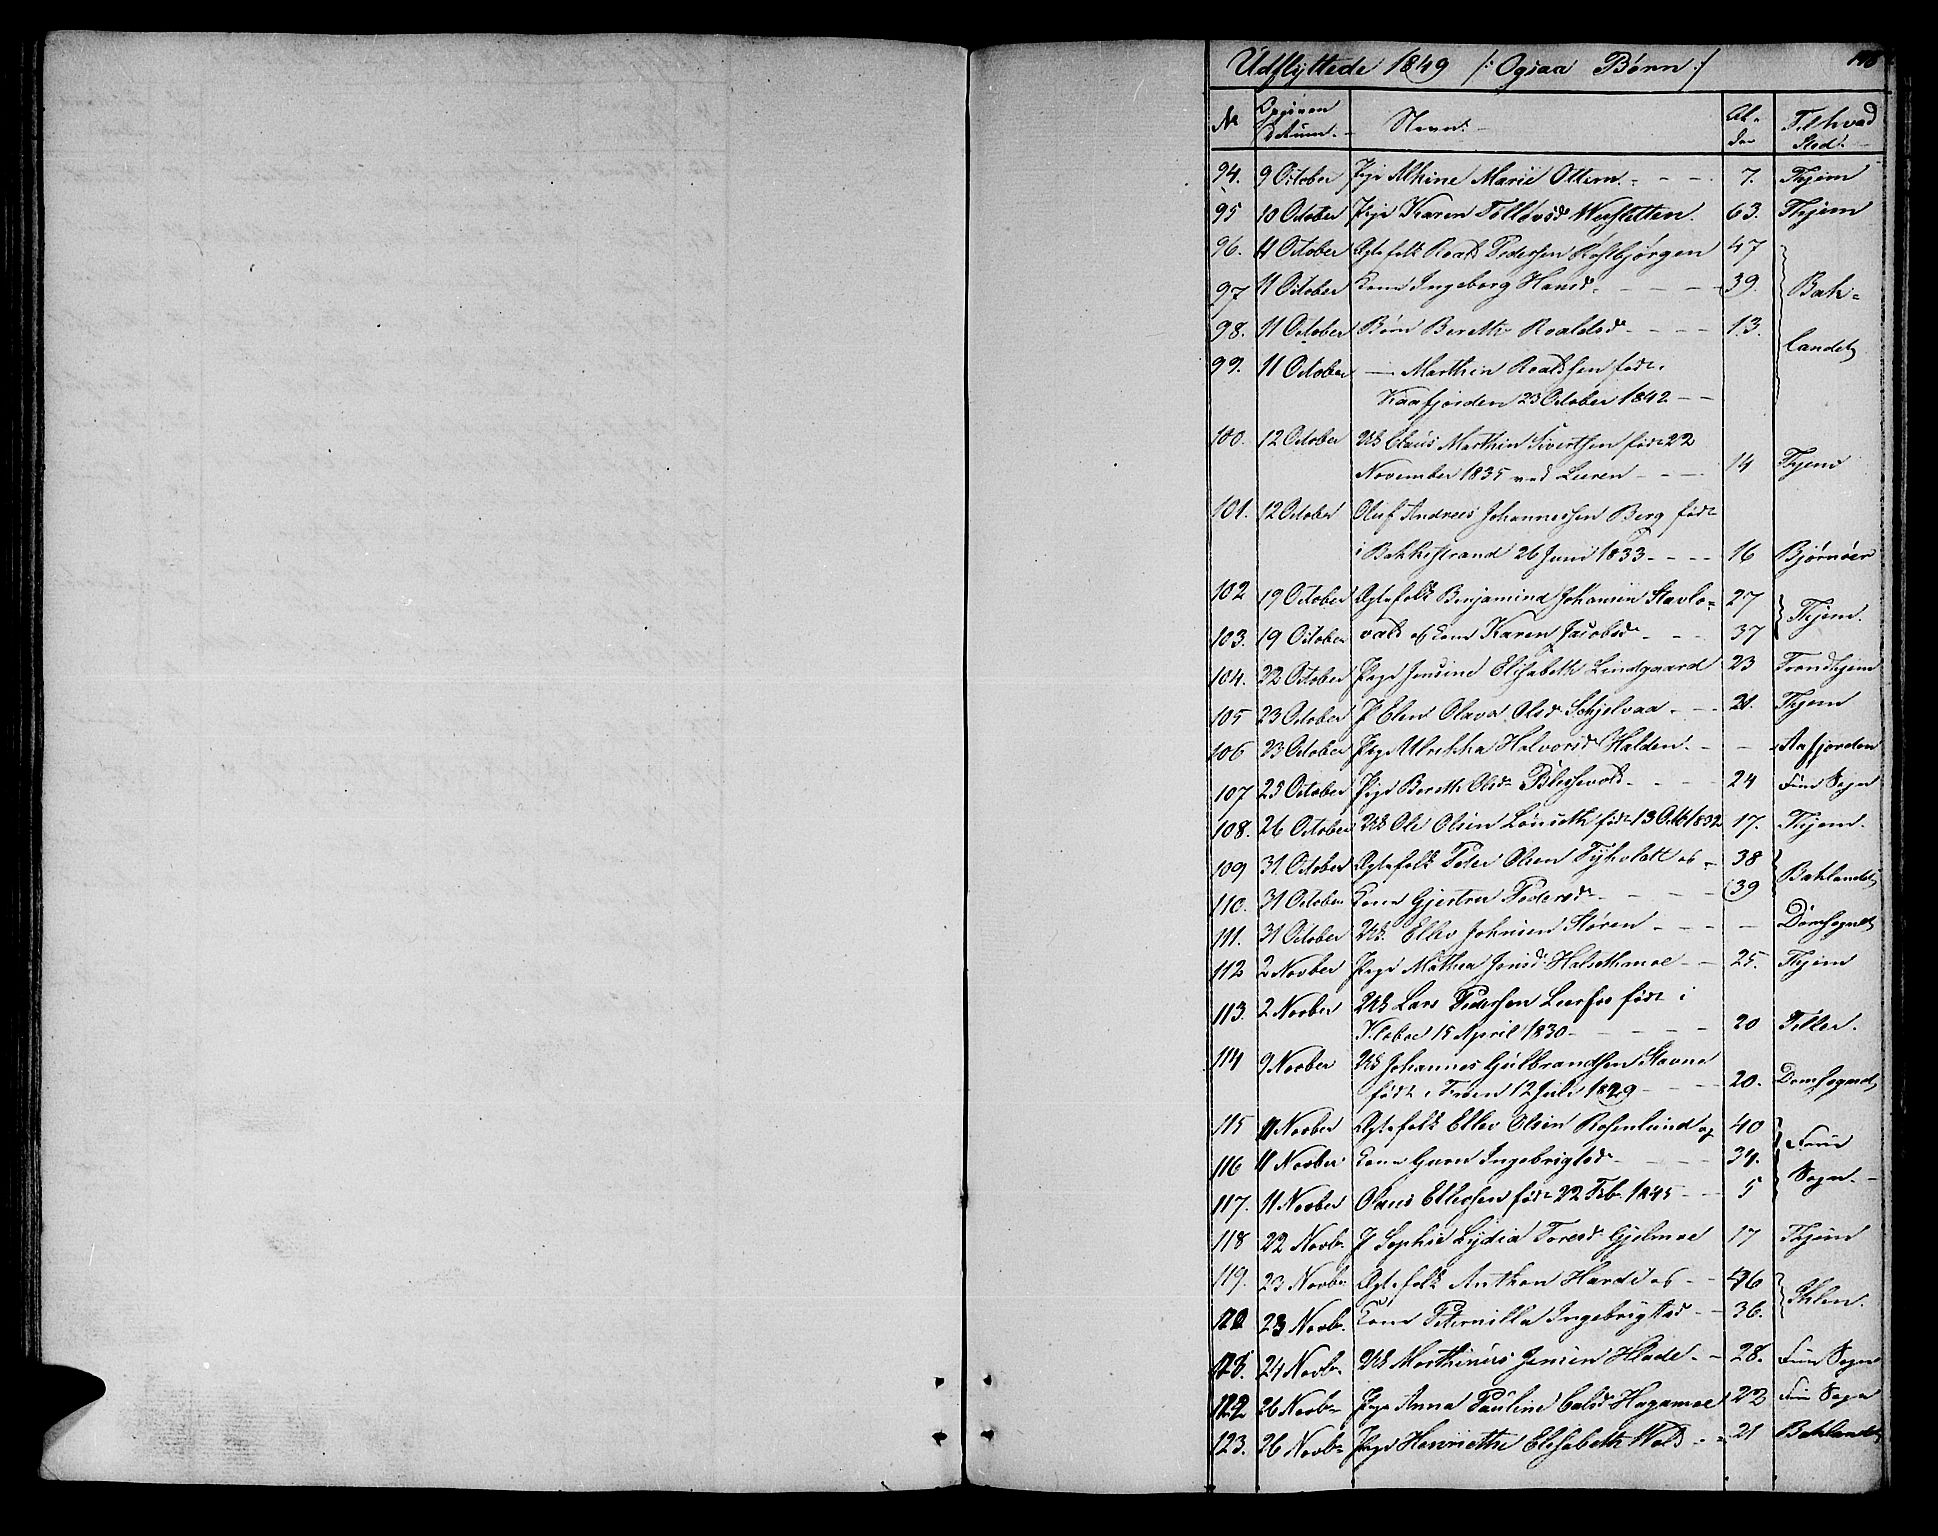 Udflyttede 1849 /: Ogsaa Børn :/
No Datum Navn Alder Til hvad Sted
94. 9 October Pige Marie Ottem 7. Thjem
95 10 October Pige Karen 63. Thjem
96. 11 October Ægtefolk Roald Pedersen 47
97 11 October Kone Ingeborg Hansd. 39. Bak=
98. 11 October Børn Bereth Roaldsd 13.
landet
99. 11 October — Marthin Roaldsen født i
Kaafjorden 23 October 1842
100. 12 October UK Claus Marthin Sivertsen født 22
November 1835 ved Leeren 14 Thjem
101. 12 October Oluf Andreas Johannessen Berg født
i Bakkestrand 26 Juni 1833 16 Bjørnøer
102 19 October Ægtefolk Benjamin Johansen Stavlo= 27
103. 19 October vald og Kone Karen Jacobsd 37 Thjem.
104. 22 October Pige Jensine Elisabeth Lindgaard 23 Trondhjem
105 23 October P Elen Olava Olsd Schjelvaa 21. Thjem
106 23 October Pige Ulrikka Halvorsd Halden. — Aafjorden
107 25 October Pige Bereth Olsd 24 Sogn
108. 26 October UK Ole Olsen født 13 Octb 1832 17. Thjem.
109 31 October Ægtefolk Peder Olsen Tyholdt og 38
110. 31 October Kone Gjertru Pedersd 39 Baklandet
111. 31 October UK. Ellev Johnsen Støren — Domsognet
112 2 Novber Pige Mathea Jonsd Halsethmoe 25. Thjem
113. 2 Novber UK Lars Pedersen Leerfos født i
Klæboe 15 April 1830 20 Tiller.
114 9 Novber UK Johannes Gulbrandsen Stavne
født i Froen 12 Juli 1829 20. Domsognet
115 11 Novber Ægtefolk Ellev Olsen Rosenlund og 40
116 11 Novber Kone Guru Ingebrigtsd 34.
Sogn.
117. 11 Novber Olaus Ellevsen født 22 Feb. 1845 5
118 22 Novbr. P Sophie Lydia Toresd Gjelmoe 17 Thjem
119. 23 Novbr Ægtefolk Anthon Hardi og 46
120 23 Novbr. Kone Peternilla Ingebrigtsd 36.
121. 24 Novbr. UK Marthinus Jensen Hlade 28. Sogn
122 26 Novbr Pige Anna Pauline Hagamoe 22 Sogn
123. 26 Novbr Pige Henriethe Elisabeth Wold 21 Baklandet